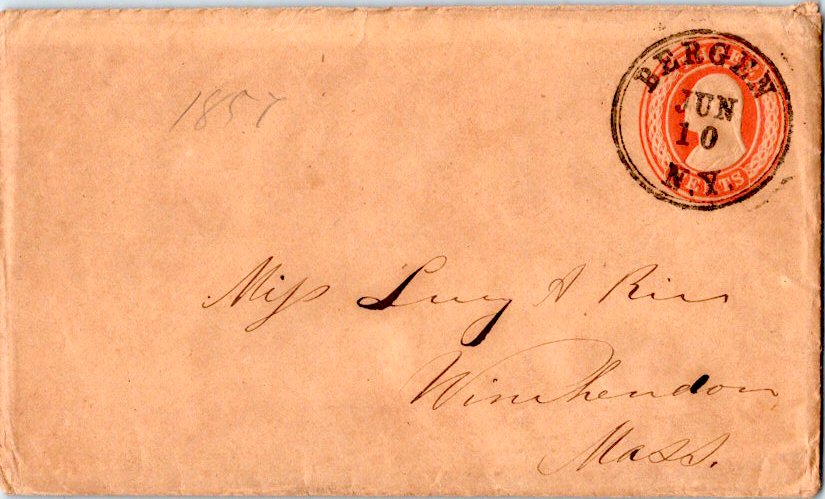 BERGEN
JUN
10
N.Y.
CENTS
1857
Miss Lucy A Rice
Winchendon
Mass.